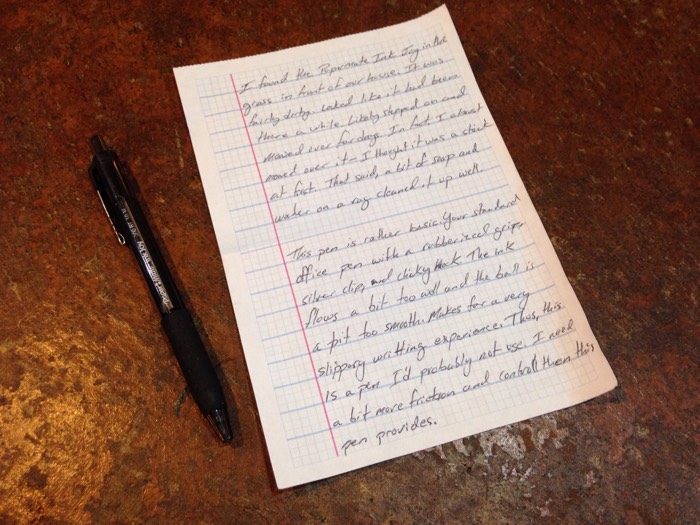 I found the Papermate Ink Joy in the
grass in front of our house. It was
fairly dirty. Looked like it had been
there a while. Likely stepped on and
mowed over for days. In fact, I almost
mowed over it - I thought it was a stick
at first. That said, a bit of soap and
water on a rag cleaned it up well.
This pen is rather basic. Your standard
office pen with a rubberized grip,
silver clip, and clicky. The ink
flows a bit too well and the ball is
a bit too smooth. Makes for a very
slippery writting experience. Thus, this
is a pen I'd probably not use. I need
a bit more friction and control then this
pen provides.